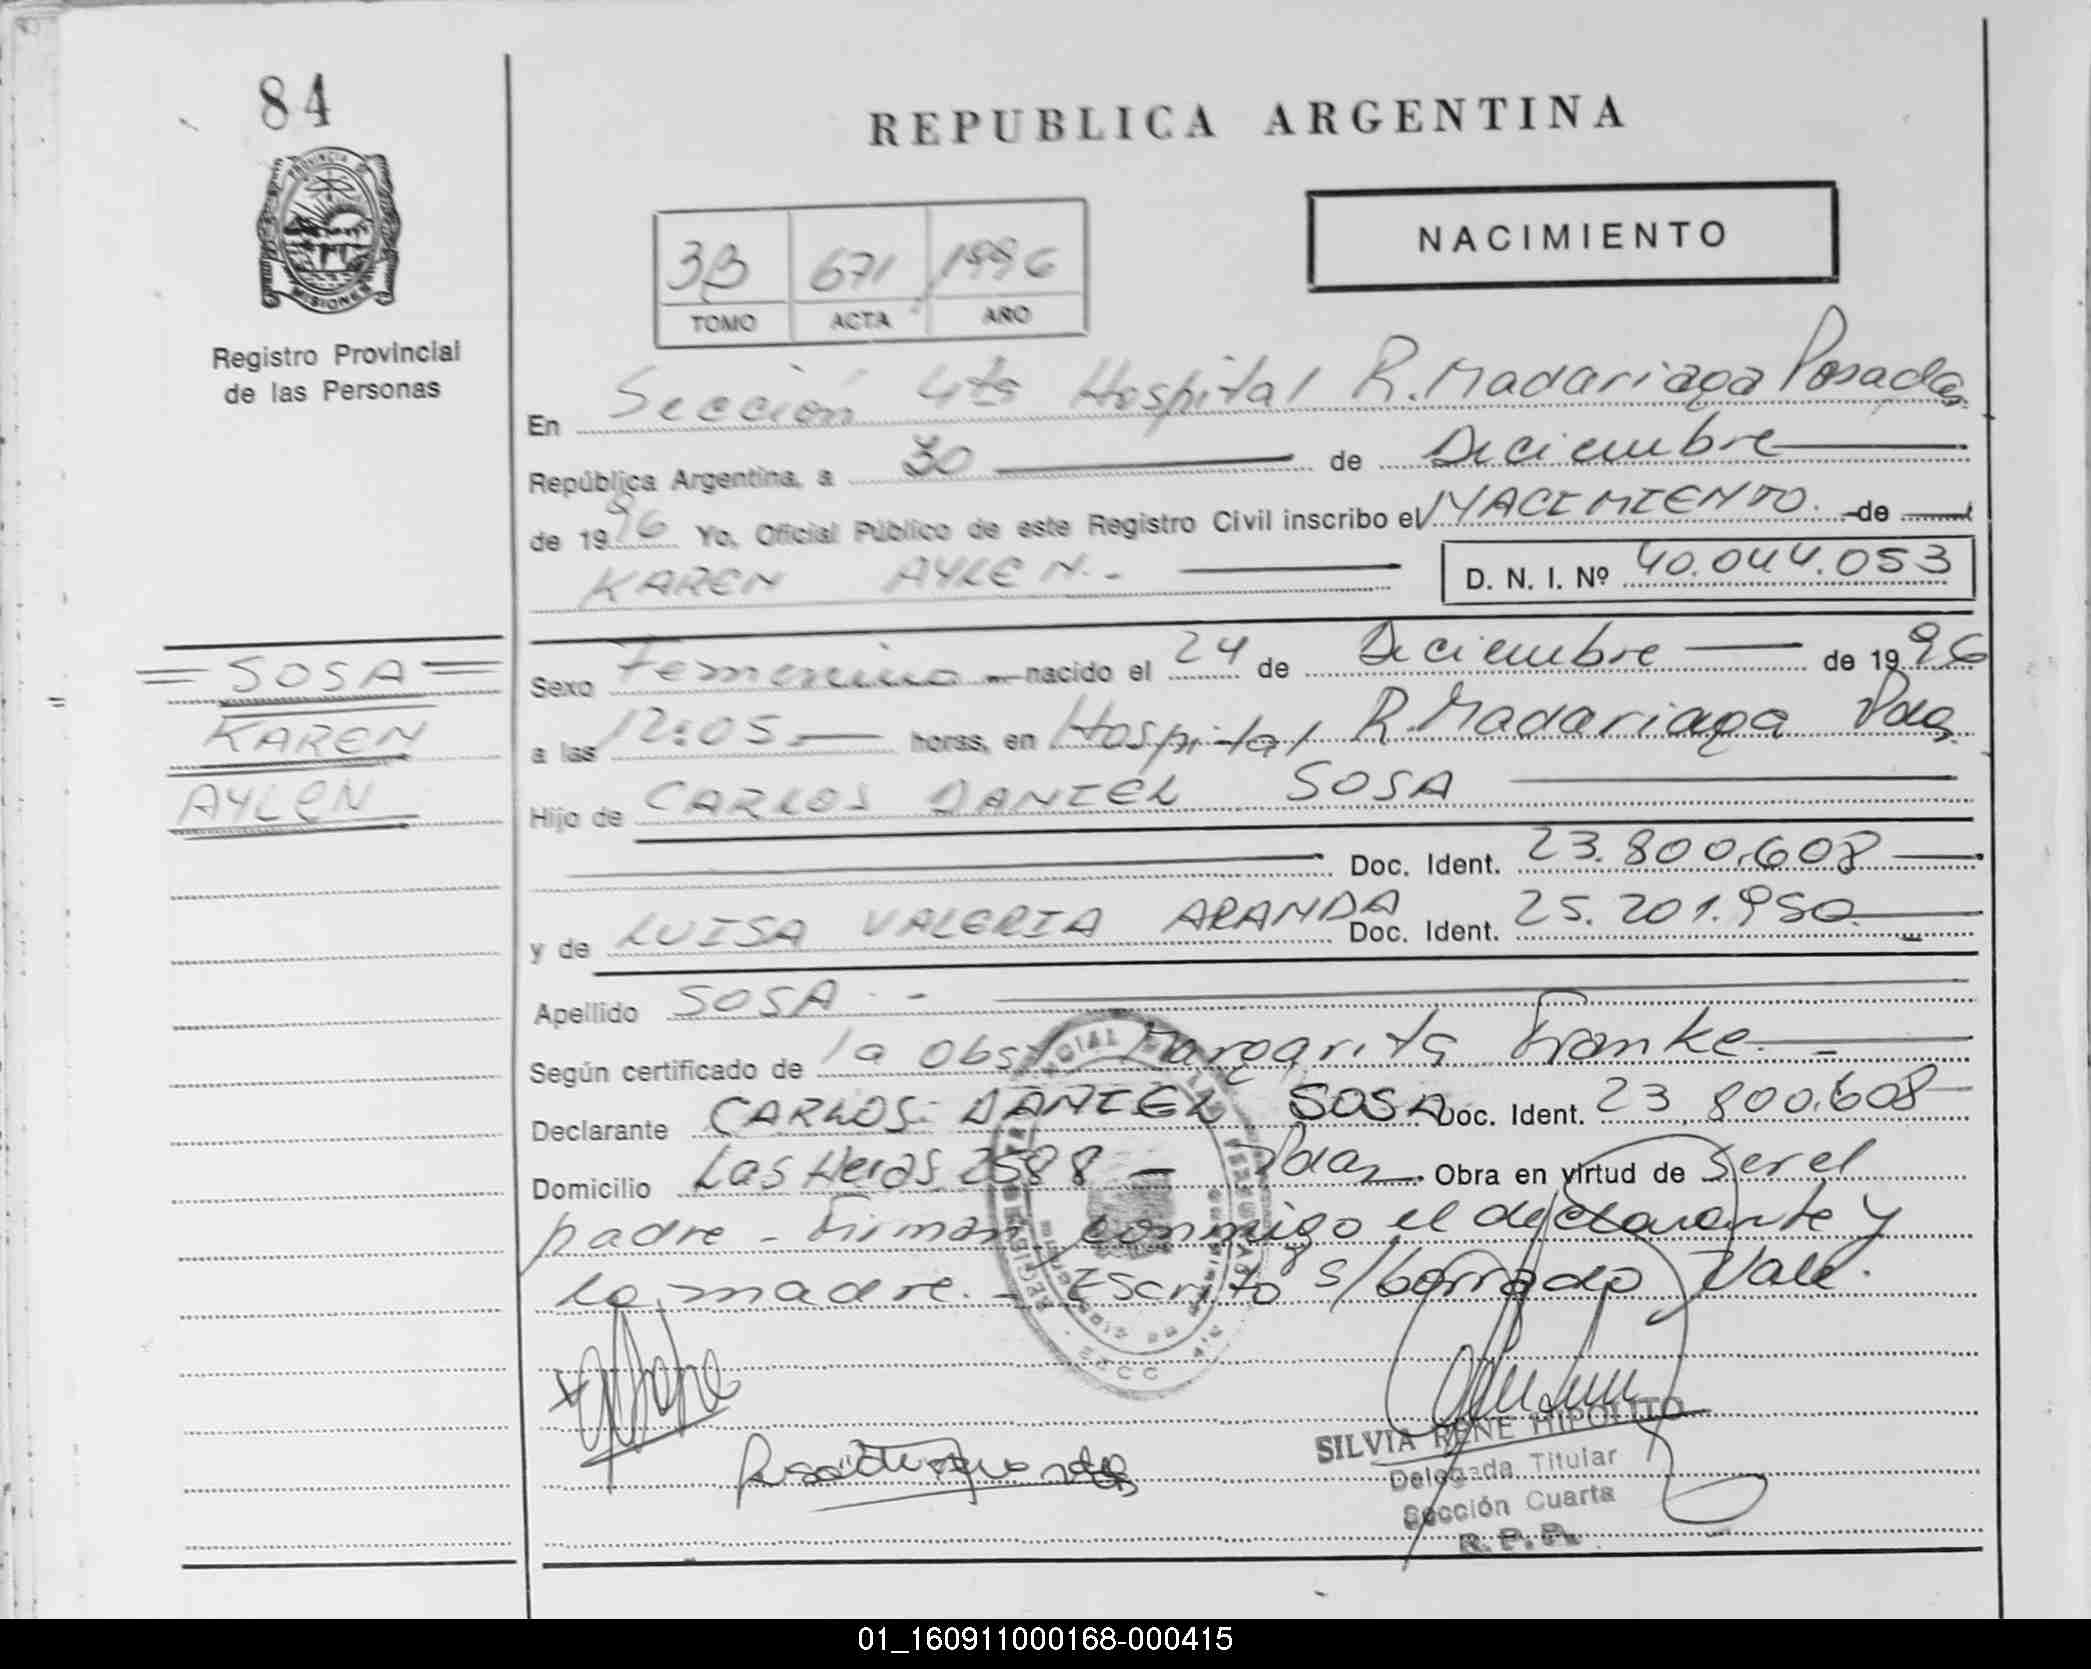 84
REPUBLICA ARGENTINA
PROVINCIA DE
MISIONES
Registro Provincial
de las Personas
NACIMIENTO
3B 671 1996
TOMO ACTA AÑO
En Sección 4ta Hospital R. Madariaga Posadas
República Argentina, a 30 de Diciembre
de 1996 Yo, Oficial Público de este Registro Civil inscribo el NACIMIENTO. de
KAREN AYLEN.- D. N. I. Nº 40.044.053
SOSA
KAREN
AYLEN
Sexo Femenino nacido el 24 de Diciembre de 1996
a las 12:05 horas, en Hospital R. Madariaga Pdas
Hijo de CARLOS DANIEL SOSA
Doc. Ident. 23.800.608
y de LUISA VALERIA ARANDA Doc. Ident. 25.201.950
Apellido SOSA.-
Según certificado de la Obst. Margarita Franke
Declarante CARLOS DANIEL SOSA Doc. Ident. 23.800.608
Domicilio Las Heras 2588 - Pdas Obra en virtud de ser el
padre - Firman conmigo el declarante y
la madre. - Escrito s/borrado Vale.
SILVIA RENE HIPOLITO
Delegada Titular
Sección Cuarta
R. P. P.
01_160911000168-000415